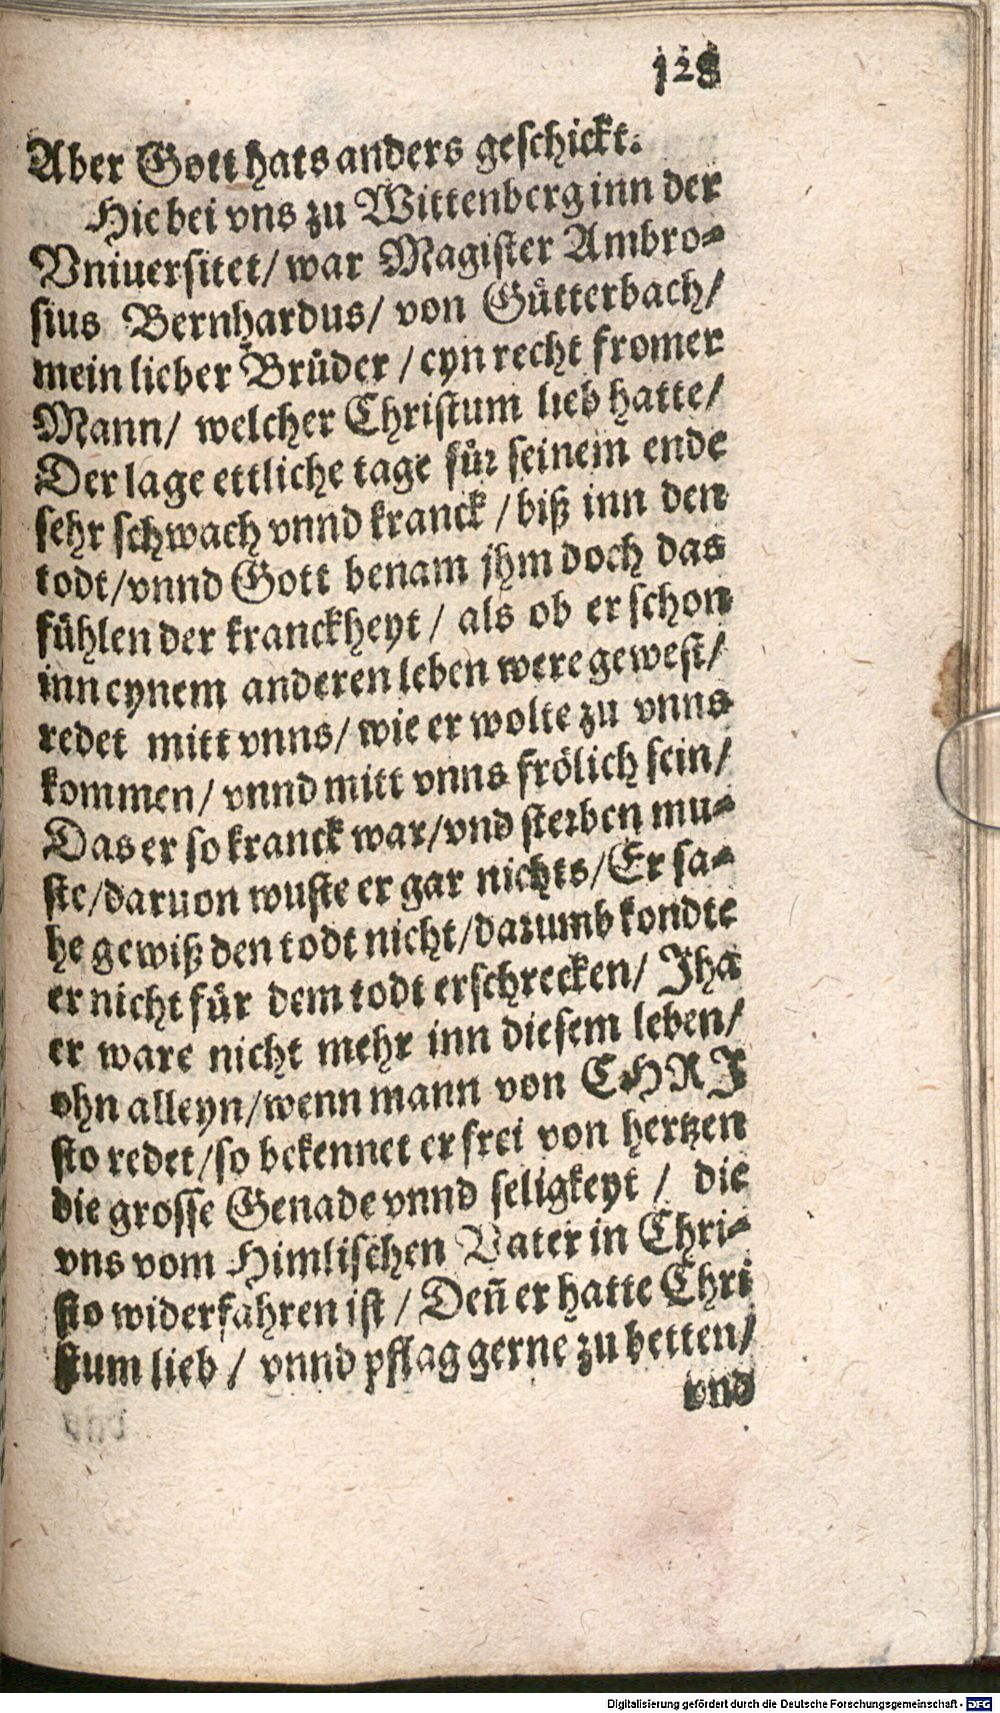 128
Aber Gott hats anders geschickt.
Hie bei vns zu Wittenberg inn der
Vniuersitet/ war Magister Ambro⸗
sius Bernhardus/ von Guͤtterbach/
mein lieber Bruͤder / eyn recht fromer
Mann/ welcher Christum lieb hatte/
Der lage ettliche tage fuͤr seinem ende
sehr schwach vnnd kranck / biß inn den
todt/vnnd Gott benam jhm doch das
fuͤhlen der kranckheyt / als ob er schon
inn eynem anderen leben were gewest/
redet mitt vnns/ wie er wolte zu vnns
kommen/ vnnd mitt vnns froͤlich sein/
Das er so kranck war/vnd sterben mu⸗
ste/daruon wuste er gar nichts/Er sa⸗
he gewiß den todt nicht/darumb kondte
er nicht fuͤr dem todt erschrecken/ Jha
er ware nicht mehr inn diesem leben/
ohn alleyn/wenn mann von CHRJ
sto redet/so bekennet er frei von hertzen
die grosse Genade vnnd seligkeyt / die
vns vom Himlischen Vater in Chri⸗
sto widerfahren ist / Deñ er hatte Chri
stum lieb / vnnd pflag gerne zu betten/
vnd
Digitalisierung gefördert durch die Deutsche Forschungsgemeinschaft - DFG